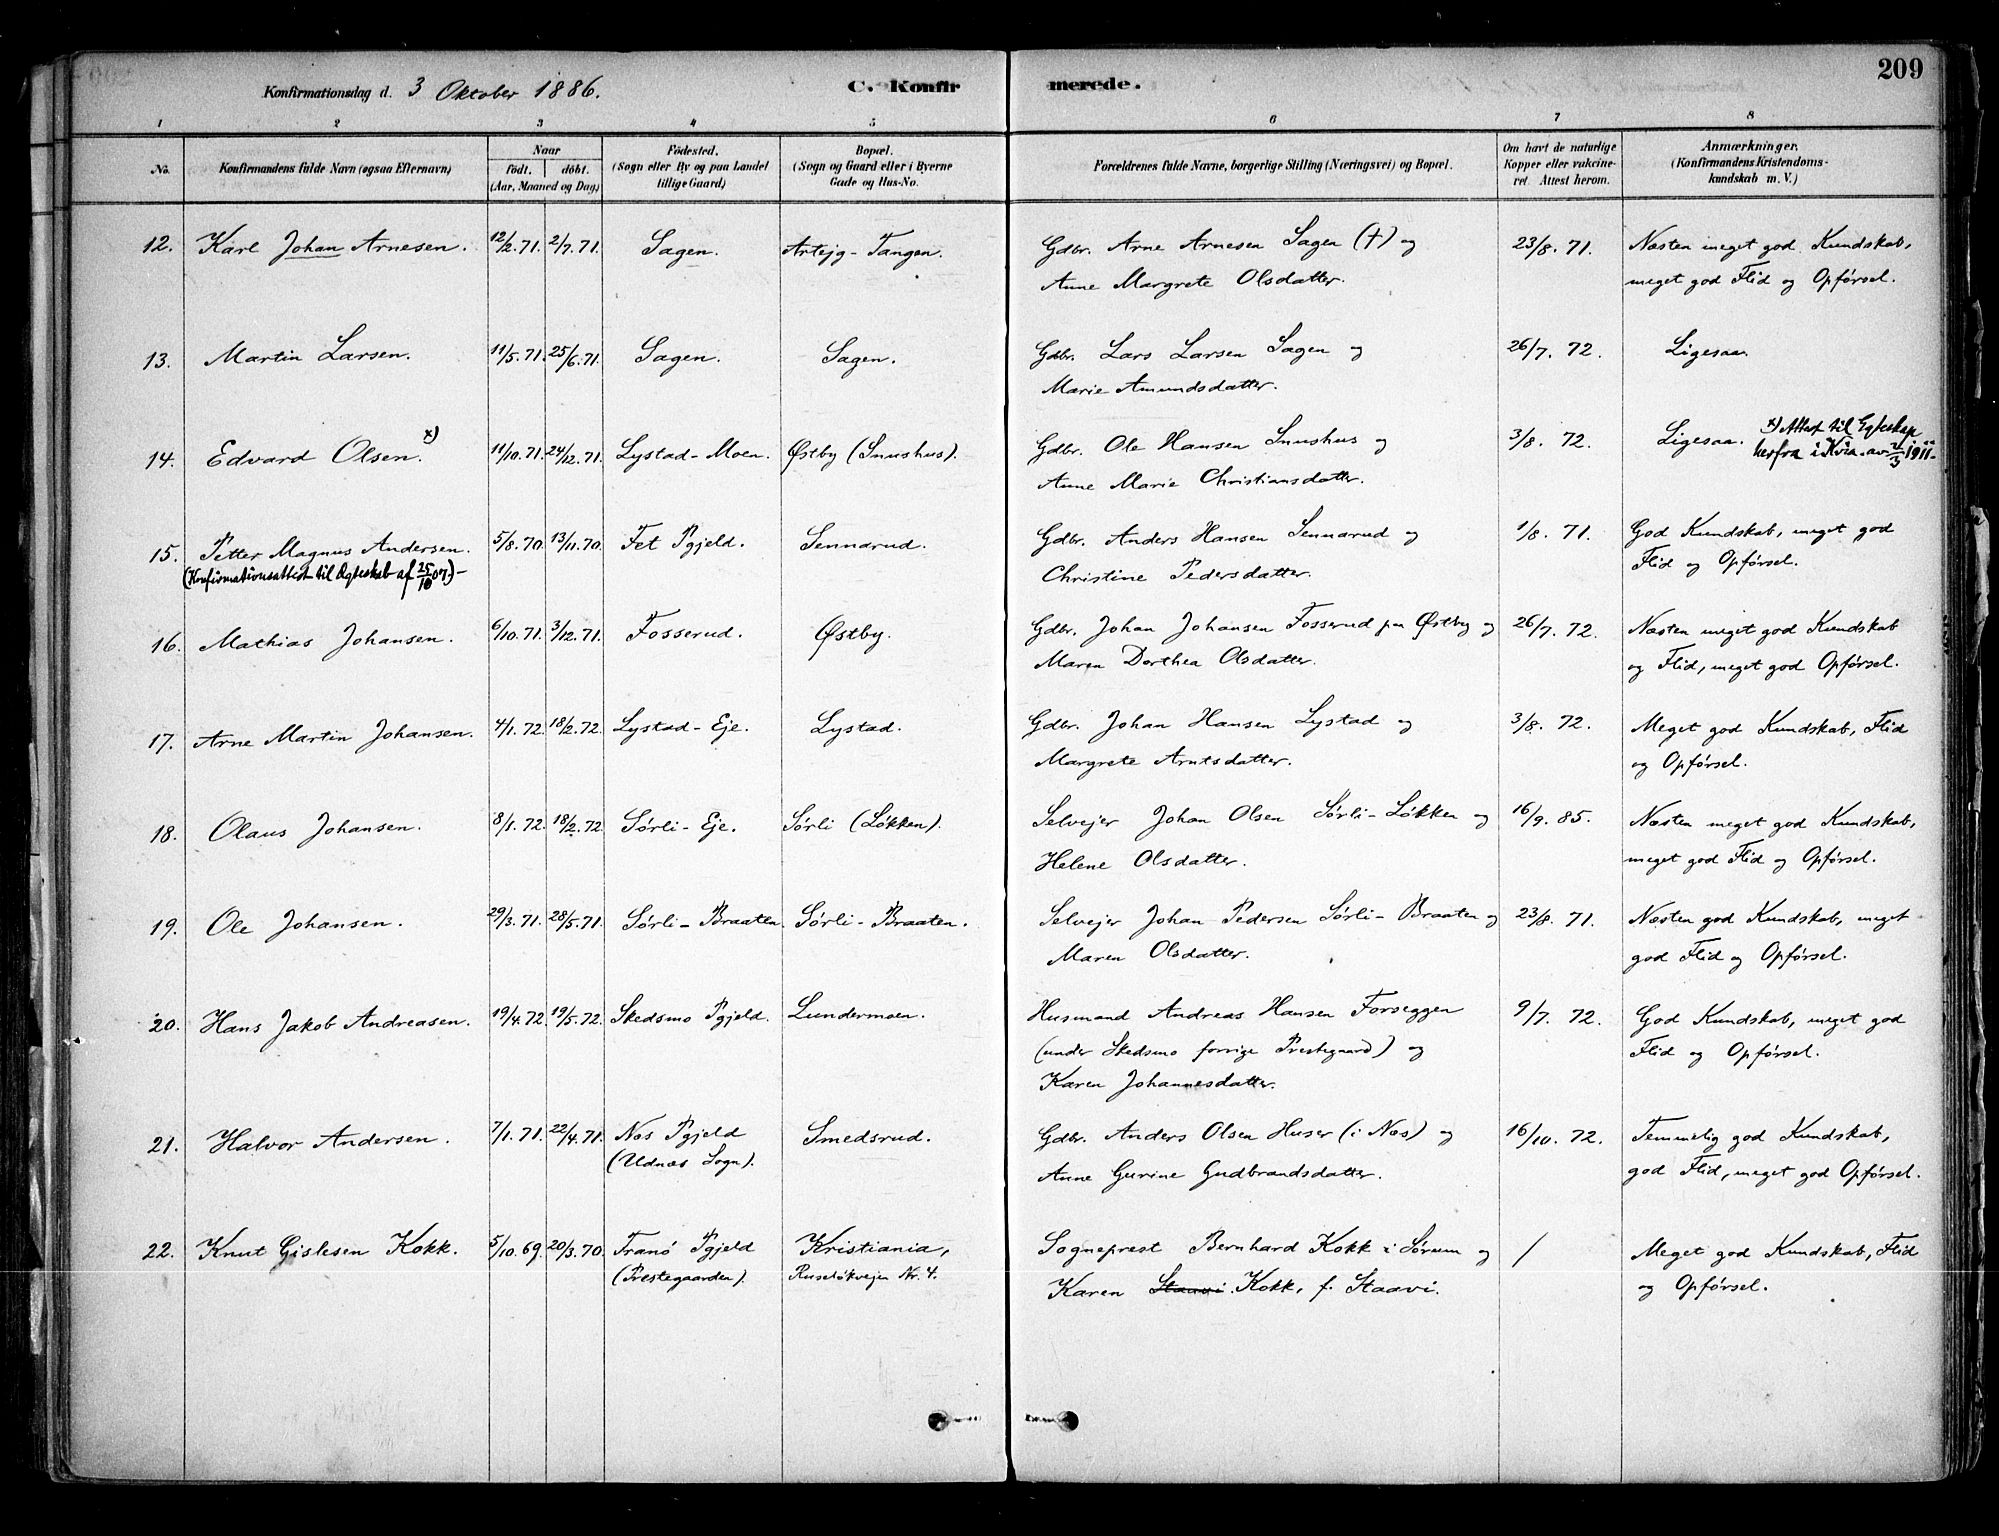 209
Konfirmationsdag d. 3 Oktober 1886. C. Konfirmerede.
1 2 3 4 5 6 7 8
No. Konfirmandens fulde Navn (ogsaa Efternavn) Naar födt. döbt. (Aar, Maaned og Dag) Födested. (Sogn eller By og paa Landet tillige Gaard) Bopæl. (Sogn og Gaard eller i Byerne Gade og Hus-No. Forældrenes fulde Navne, borgerlige Stilling (Næringsvei) og Bopæl. Om havt de naturlige Kopper eller vakcineret. Attest herom. Anmærkninger. (Konfirmandens Kristendomskundskab m. V.)
12. Karl Johan Arnesen. 12/2. 71. 2/7. 71. Sagen. Artejg-Tangen. Gdbr. Arne Arnesen Sagen (†) og 23/8. 71. Næsten meget god Kundskab,
Anne Margrete Olsdatter. meget god Flid og Opførsel.
13. Martin Larsen. 11/5. 71. 25/6. 71. Sagen. Sagen. Gdbr. Lars Larsen Sagen og 26/7. 72. Ligesaa.
Marie Amundsdatter.
14. Edvard Olsen. x) 11/10. 71. 24/12. 71. Lystad-Moen. Østby (Snushus). Gdbr. Ole Hansen Snushus og 3/8. 72. Ligesaa. x) Attest til Egteskap
herfra i Kvia. av 2/3 1911.
Anne Marie Christiansdatter.
15. Petter Magnus Andersen. 5/8. 70. 13/11. 70. Fet Pgjeld. Sennarud. Gdbr. Anders Hansen Sennarud og 1/8. 71. God Kundskab, meget god
(Konfirmationsattest til Ægteskab af 25/10 07.)- Christine Pedersdatter. Flid og Opførsel.
16. Mathias Johansen. 6/10. 71. 3/12. 71. Fosserud. Østby. Gdbr. Johan Johansen Fosserud paa Østby og 26/7. 72. Næsten meget god Kundskab
Maren Dorthea Olsdatter. og Flid, meget god Opførsel.
17. Arne Martin Johansen. 4/1. 72. 18/2. 72. Lystad-Eje. Lystad. Gdbr. Johan Hansen Lystad og 3/8. 72. Meget god Kundskab, Flid
Margrete Arntsdatter. og Opførsel.
18. Olaus Johansen. 8/1. 72. 18/2. 72. Sørli-Eje. Sørli (Løkken). Selvejer Johan Olsen Sørli-Løkken og 16/9. 85. Næsten meget god Kundskab,
Helene Olsdatter. meget god Flid og Opførsel.
19. Ole Johansen. 29/3. 71. 28/5. 71. Sørli-Braaten. Sørli-Braaten. Selvejer Johan Pedersen Sørli-Braaten og 23/8. 71. Næsten god Kundskab, meget
Maren Olsdatter. god Flid og Opførsel.
20. Hans Jakob Andreasen. 19/4. 72. 19/5. 72. Skedsmo Pgjeld. Lundermoen. Husmand Andreas Hansen Forseggen 9/7. 72. God Kundskab, meget god
(under Skedsmo forrige Prestegaard) og Flid og Opførsel.
Karen Johannesdatter.
21. Halvor Andersen. 7/1. 71. 22/4. 71. Næs Pgjeld Smedsrud. Gdbr. Anders Olsen Huser (i Næs) og 16/10. 72. Temmelig god Kundskab,
(Udnæs Sogn). Anne Gurine Gudbrandsdatter. god Flid, meget god Opførsel.
22. Knut Gislesen Kokk. 5/10. 69. 20/3. 70. Tranö Pgjeld Kristiania, Sogneprest Bernhard Kokk i Sørum og / Meget god Kundskab, Flid
(Prestegaarden). Ruseløkvejen Nr. 4. Karen Staavi. Kokk, f. Staavi. og Opførsel.